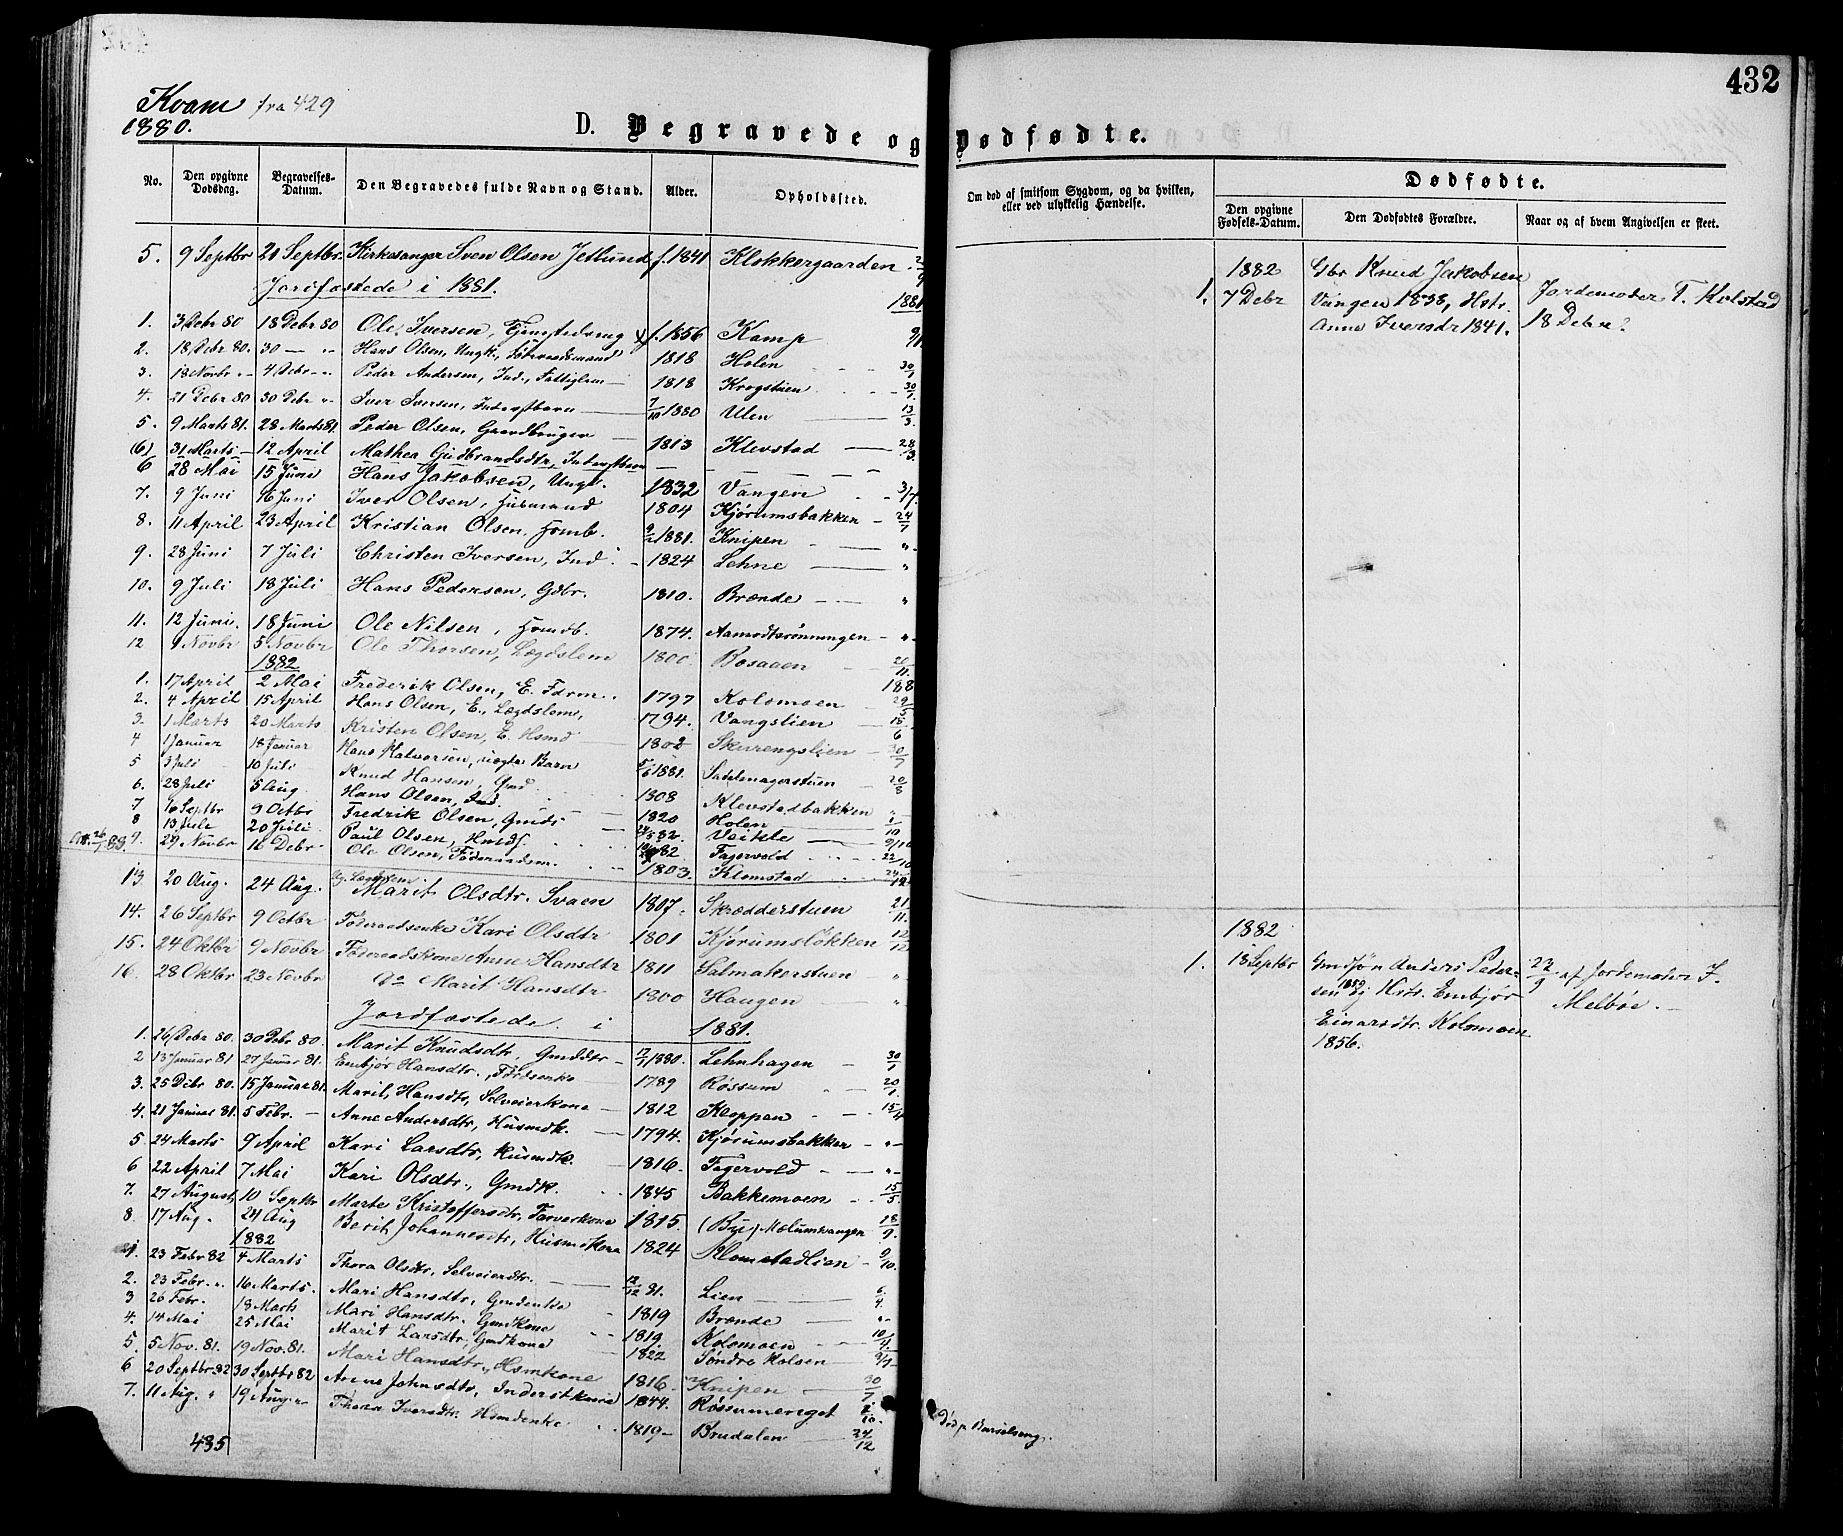 432
Kvam fra 429
1880.
D. Begravede og Dødfødte.
No. Den opgivne Dødsdag. Begravelses-Datum. Den Begravedes fulde Navn og Stand. Alder. Opholdssted. Om død af smitsom Sygdom, og da hvilken, eller ved ulykkelig Hændelse. Dødfødte.
Den opgivne Fødsels-Datum. Den Dødfødtes Forældre. Naar og af hvem Angivelsen er skeet.
5. 9 Septbr 21 Septbr. Kirkesanger Sven Olsen Jetlund f. 1841 Klokkergaarden
Jordfæstede i 1881. 1881
1. 3 Debr 80 18 Debr 80 Ole Iversen, f. 1856 Kamp
2. 18 Debr 80. 30 — " Hans Olsen, Ungk., 1818 Holen 30/1
3. 18 Novbr " 4 Debr " Peder Andersen, Ind., Fattiglem 1818 Krogstuen 30/1
4. 21 Debr 80 30 Debr " Iver Iversen, 7/10 1880 Ulen 13/3
5. 9 Marts 81. 28 Marts 81. Peder Olsen, Gaardbruger 1813 Klevstad 28/3
(6) 31 Marts 12 April Mathea Gudbrandsdtr,
6 28 Mai 15 Juni Hans Jakobsen, Ungk. 1832 Vangen 3/7
7. 9 Juni 16 Juni Iver Olsen, Husmand 1804 Kjørumsbakken 24/7
8. 11 April 23 April Kristian Olsen, Hsmb. 9/2 1881. Knipen "
9. 28 Juni 7 Juli Christen Iversen, Ind. 1824 Lehne "
10. 9 Juli 18 Juli Hans Pedersen, Gdbr. 1810. Brænde "
11. 12 Juni. 18 Juni Ole Nilsen, Hsmdb. 1874. Aamodtsrønningen "
12 9 Novbr 5 Novbr Ole Thorsen, Lægdslem 1800 Rosaaen 20/11
1882 188
1. 17 April 2 Mai Frederik Olsen, E. 1797 Kolomoen
2. 4 April 15 April Hans Olsen, E., Lægdslem, 1794. Vangslien
3. 1 Marts 20 Marts Kristen Olsen, E. Hsmd 1802 Skurengslien 30/7
4 1 Januar 18 Januar Hans Halvorsen, uægte Barn 5/6 1881. Sadelmagerstuen 20/8
5 3 Juli 10 Juli Knud Hansen, Gmd. 1808 Klevstadbakken
6. 28 Juli 5 Aug. Hans Olsen, Ind. 1820 Holen
7 16 Septbr 9 Octbr Fredrik Olsen, Gmds 82. Veikle
8 13 Juli 20 Juli Paul Olsen, 82 Fagervold
9. 29 Novbr 16 Debr Ole Olsen, 1803. Klomstad 24/12
13 20 Aug. 24 Aug. Marit Olsdtr. Svaen 1807. Skrædderstuen 21/11.
14. 26 Septbr 9 Octbr Føderaadsenke Kari Olsdtr 1801 Kjørumsløkken 12/12
15. 24 Oktbr 9 Novbr Føderaadskone Anne Hansdtr 1811 Salmakerstuen "
16. 28 Oktbr 23 Novbr Marit Hansdtr 1800 Haugen "
Jordfæstede i 1881.
1. 26 Debr 80. 30 Debr 80. Marit Knudsdtr, 1880. Lehnhagen 30/1
2 13 Januar 81 27 Januar 81. Embjør Hansdtr., 1789 Røssum 20/1.
3. 25 Debr 80. 15 Januar 81. Marit Hansdtr, Selveierkone 1812 Kloppen 15/4
4. 21 Januar 81. 5 Febr. Anne Andersdtr, Husmdk. 1794. Kjørumsbakken "
5. 24 Marts 9 April Kari Larsdtr, Husmdk. 1816. Fagervold "
6 22 April 7 Mai Kari Olsdtr., Gmdk. 1845 Bakkemoen 15/5.
7. 27 August 10 Septbr Marte Kristoffersdtr, Farverkone 1815. (Bye) Mælumsvangen 18/9.
8. 17 Aug. 24 Aug Berit Johannesdtr, Husmdkone 1824 Klomstadlien 9/10.
1882
1. 23 Febr 82 4 Marts Thora Olsdtr, Selveierdtr. 12/12 81. Lien 6/4.
2. 23 Febr. " 16 Marts. Mari Hansdtr, Gmdenke 1819 Brænde "
3 26 Febr. 18 Marts Mari Hansdtr. Gmdkone 1819 Kolomoen 10/4.
4. 14 Mai 25 Mai Marit Larsdtr, Gmdkone 1822 Søndre Kolsen 9/7
5. 5 Nov. 81. 19 Nov. 81. Mari Hansdtr., Hsmkone 1816. Knipen 30/7
6 20 Septbr. 82 30 Septbr 82 Anne Johnsdtr, Inderstkone 1844. Røssumeriget
7. 11 Aug. " 19 Aug. " Thora Iversdtr. Hsmdenke 1819 Brudalen 24/12
Død p. Barselseng.
435
1. 1882
7 Debr Gbr Knud Jakobsen
Vangen 1838, Hstr.
Anne Iversdtr 1841.
Jordemoder T. Kolstad
18 Debr.
1882
1. 18 Septbr Gmdsøn Anders Peder-
sen 1859 og Hstr. Embjør
Einarsdtr. Kolomoen
1856.
23/9 af Jordemoder I.
Melbøe.